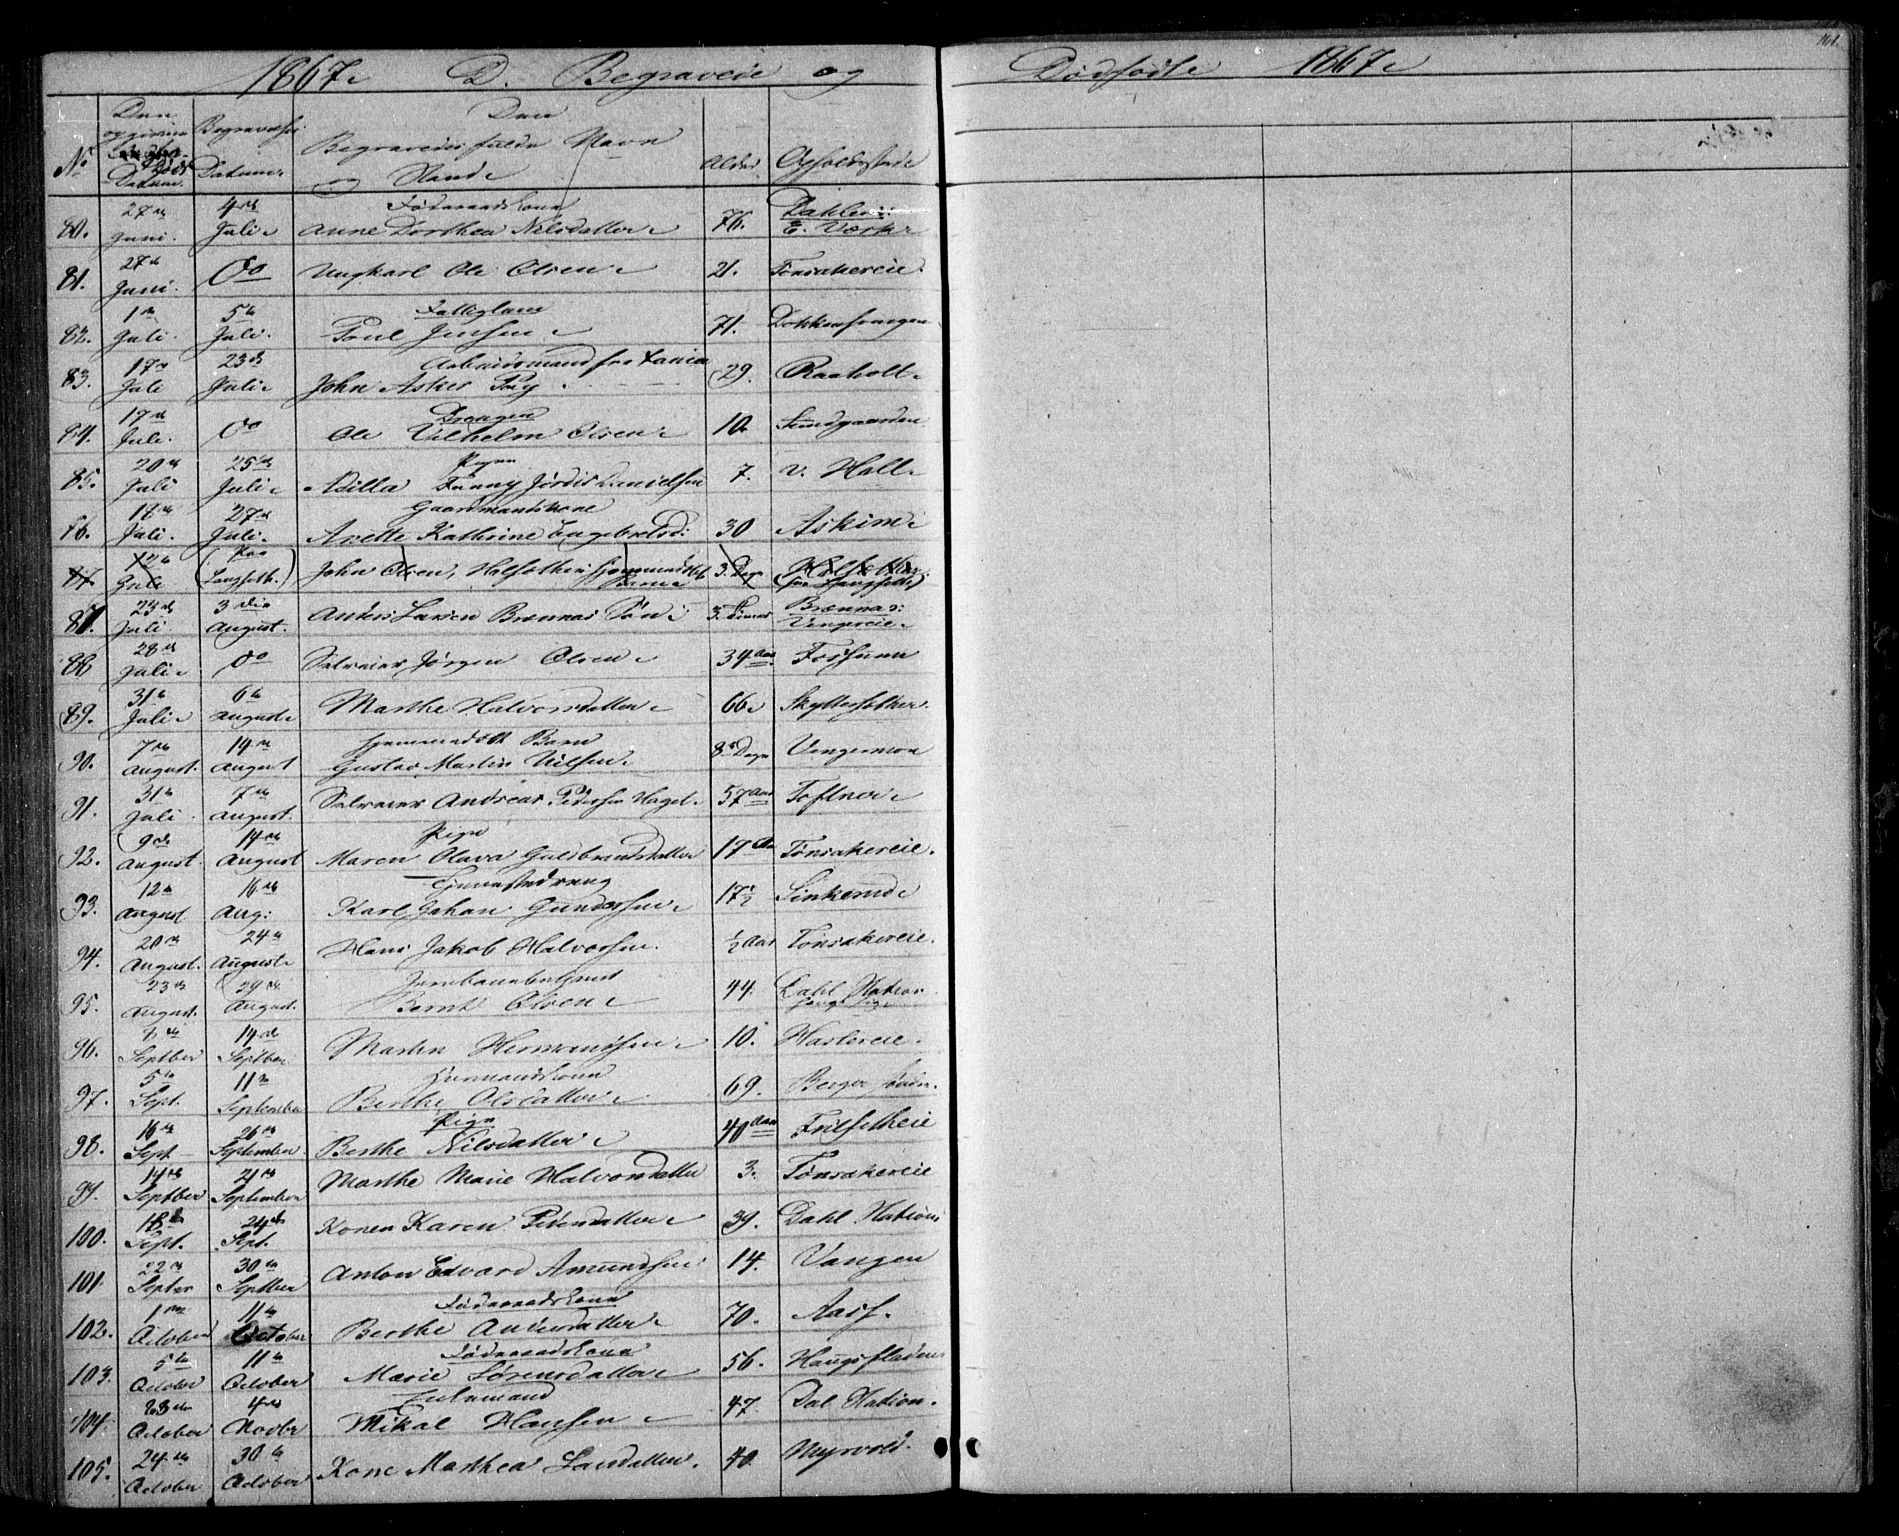 1867. D. Begravede og Dødfødte 1867.
161.
No Den opgivne Døds Datum. Begravelses Datum. Den Begravedes fulde Navn og Stand. Alder. Opholdsstæde
80. 27de Juni. 4de Juli Føderaadskone Anne Dorthea Nilsdatter 76. Dahlen: E. Værk
81. 27de Juni. Do Ungkarl Ole Olsen 21. Tønsakereie
82. 1ste Juli. 5te Juli. Fattiglem Poul Jensen 71.
83. 17de Juli 23de Juli Arbeidsmand fra John Asker 29. Raaholt
84. 17de Juli. Do Drengen Ole Vilhelm Olsen 10 Sundgaarden
85. 20de Juli 25de Juli Pigen Fanny Jørdis Danielsen 7. v. Hall
86. 17de Juli. 27de Juli. Gaardmandskone Anette Kathrine Engebretsd: 30 Askim
87. 12te Juli (Paa Langseth.) John Olsen, Barn 3. Dage
87. 23de Juli 3die August. Anders Larsen Brennas Søn 3. Brennas: Vengereie
88 28de Juli Do Selveier Jørgen Olsen 34 Aar Fossum
89. 31te Juli 6te August Marthe Halvorsdatter 66 Skyttesether
90. 7de August. 14de August hjemmedøbt Barn Gustav Martin Nilsen 8 Dage Vengermoe
91. 31te Juli 7de August. Selveier Andreas Pedersen Hagel 57 Aar Toftner
92. 9de August. 14de August Pige Maren Olava Guldbrandsdatter 17 Aar Tønsakereie.
93. 12te August 16de Aug: Tjenestedreng Karl Johan Gundersen 17½ Sinkerud
94. 20de August. 24de August Hans Jakob Halvorsen. ½ Aar Tønsakereie.
95. 23de August. 29de August. Jernbanebetjent Bernt Olsen 44. Dahl Station
96. 7de Septber 14de Septber Martin Hermansen 10. Haslereie.
97. 5te Sept. 11te September Huusmandskone Berthe Olsdatter 69. Berger
98. 16de Sept 26de September Pige Berthe Nilsdatter 40 Aar
99. 14de Septber 21de September Marthe Marie Halvorsdatter 3. Tønsakereie
100. 18de Sept. 24de Sept. Konen Karen Pedersdatter 39. Dahl Station
101. 22de Septer 30te Septber Anton Edvard Amundsen 14. Vangen
102. 1ste October 11te October Føderaadskone Berthe Andersdatter 70. Aas
103. 5te October 11te October Føderaadskone Marie Sørensdatter 56. Haugsfladen
104. 23de October 4de Novbr Enkemand Mikal Hansen 47. Dal Station.
105. 24de October 30te October Kone Marthea Larsdatter. 40. Myrvold.